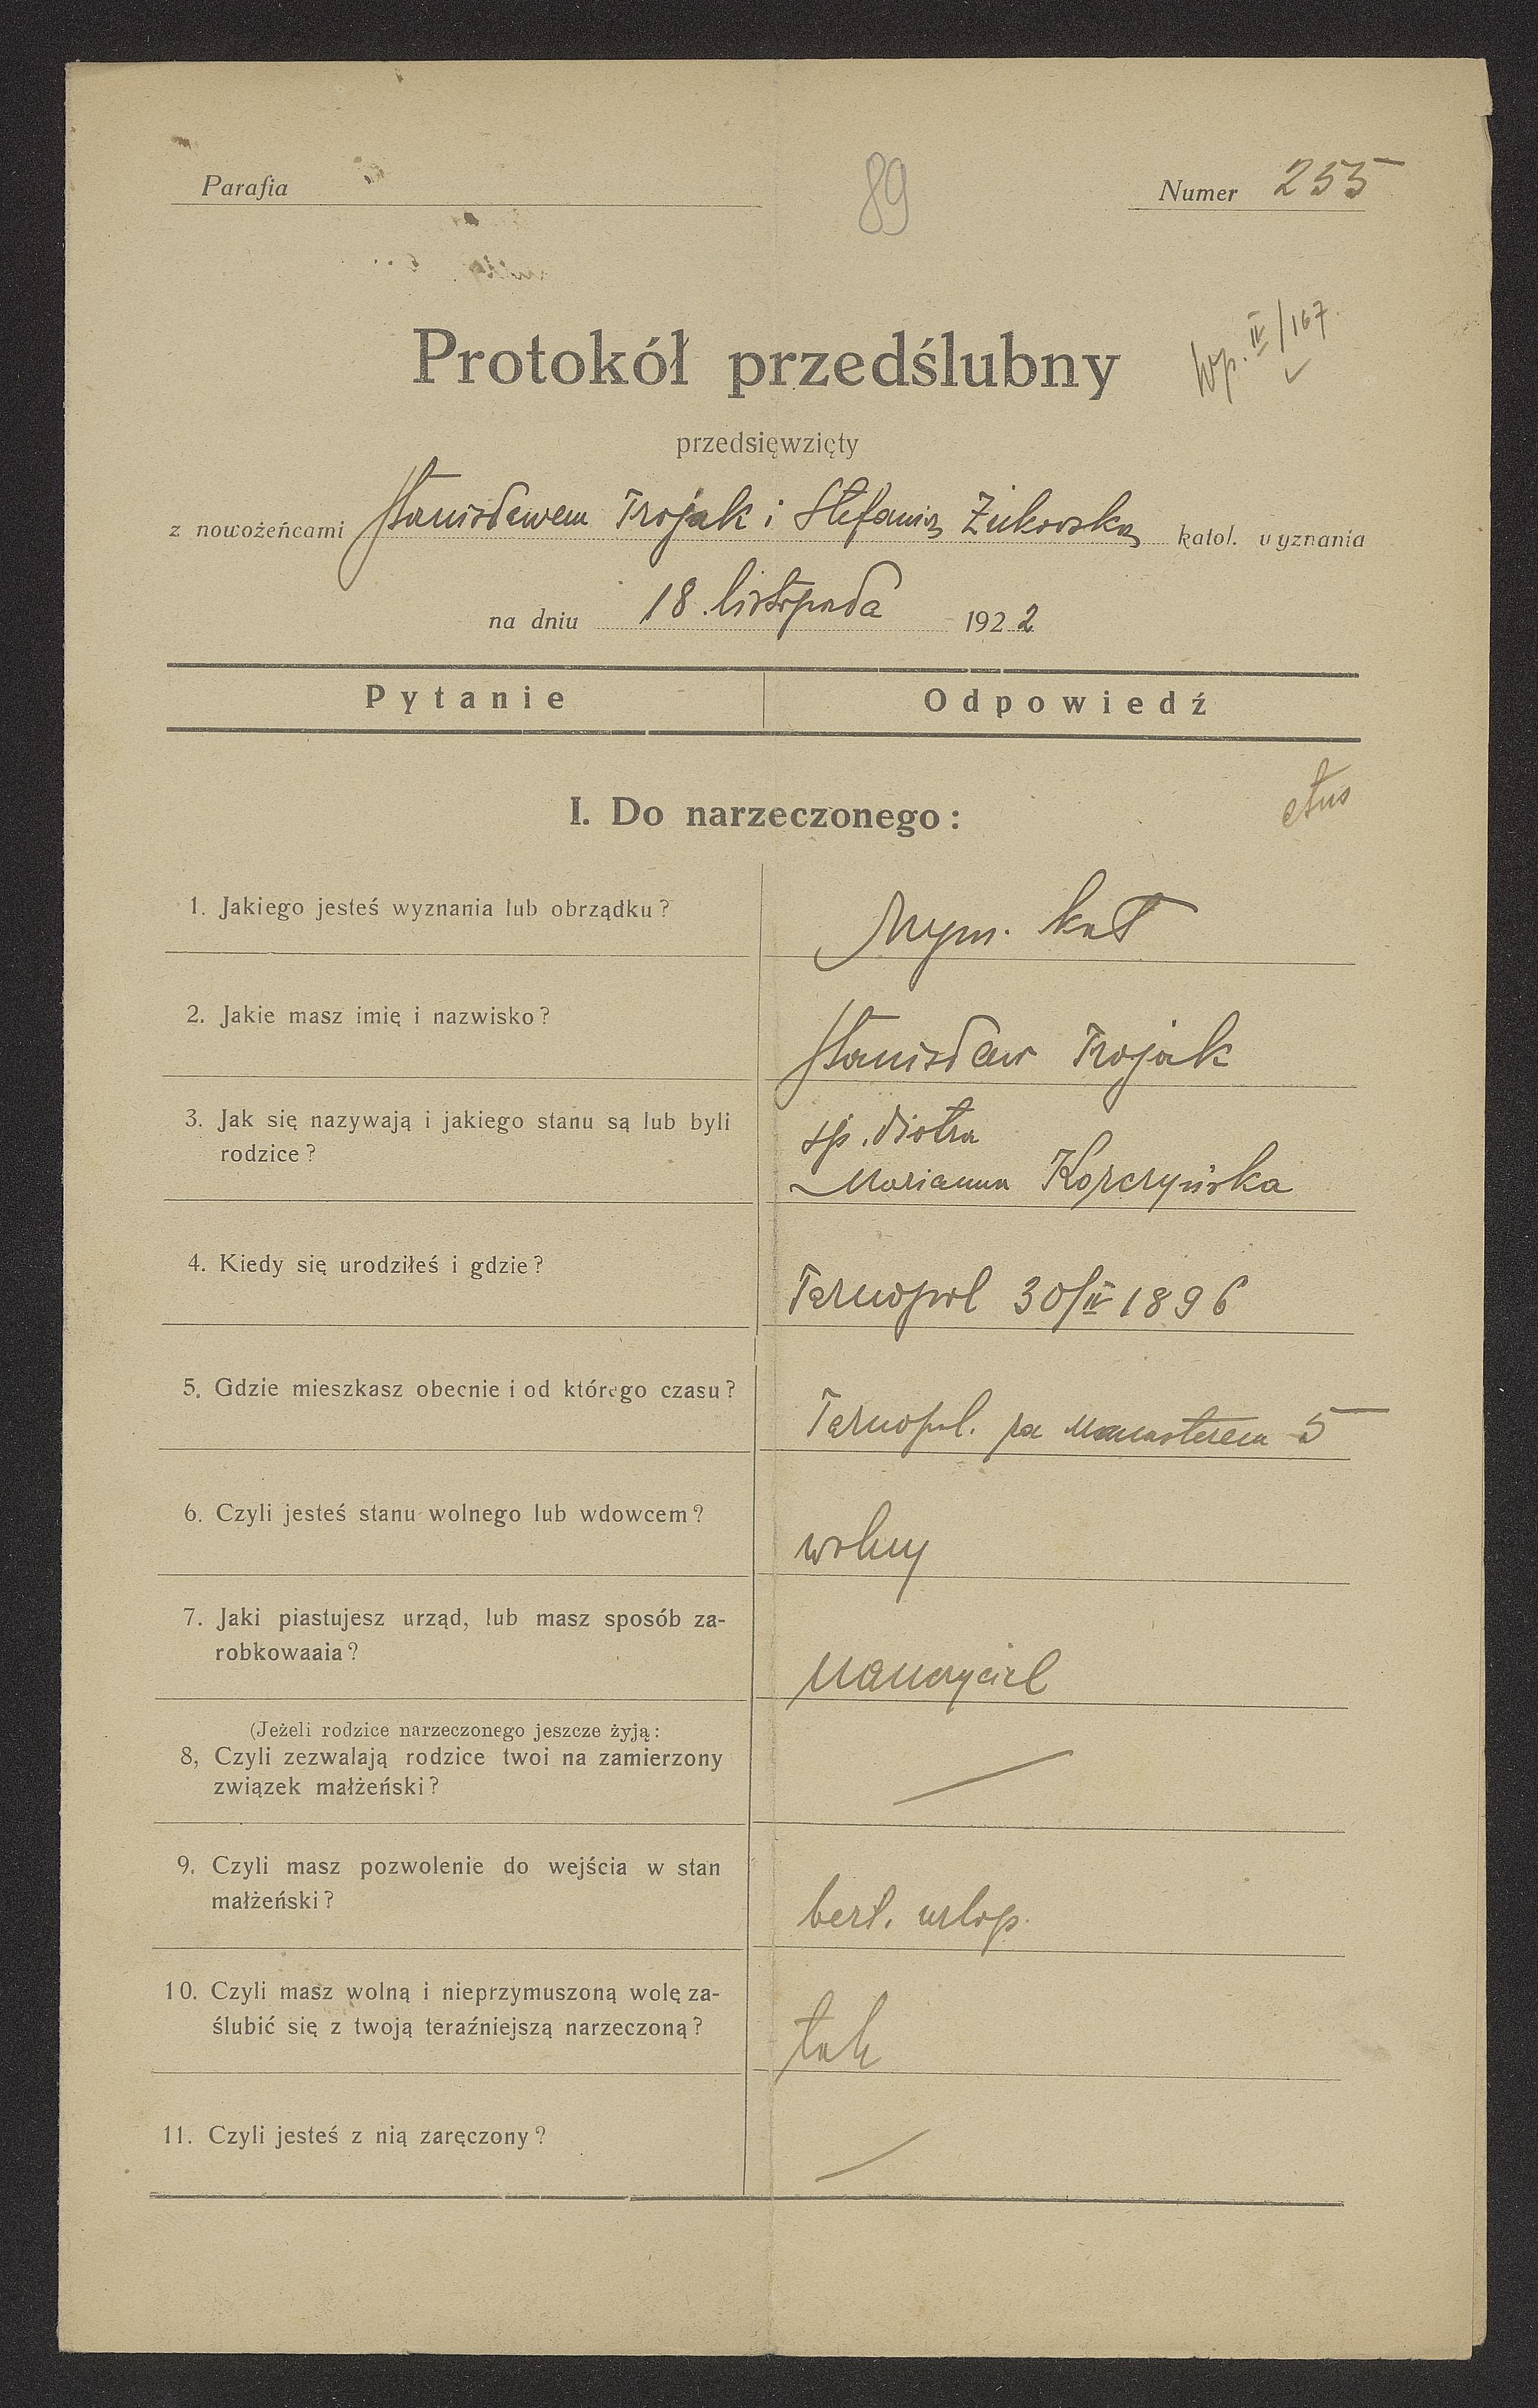 Parafia
89
Numer 255
Protokół przedślubny
Wp. IV/167.
przedsięwzięty
z nowożeńcami Stanisławem Trojak i Stefanią Żukowską katol. wyznania
na dniu 18. listopada 1922
Pytanie Odpowiedź
I. Do narzeczonego:
1. Jakiego jesteś wyznania lub obrządku?
rzym. kat
2. Jakie masz imię i nazwisko?
Stanisław Trojak
3. Jak się nazywają i jakiego stanu są lub byli
rodzice?
śp. Piotra
Marianna Korczyńska
4. Kiedy się urodziłeś i gdzie?
Tarnopol 30/IV 1896
5. Gdzie mieszkasz obecnie i od którego czasu?
Tarnopol. za Monasterem 5
6. Czyli jesteś stanu wolnego lub wdowcem?
wolny
7. Jaki piastujesz urząd, lub masz sposób za-
robkowaaia?
nauczyciel
(Jeżeli rodzice narzeczonego jeszcze żyją:
8, Czyli zezwalają rodzice twoi na zamierzony
związek małżeński?
9. Czyli masz pozwolenie do wejścia w stan
małżeński?
bezt. urlop.
10. Czyli masz wolną i nieprzymuszoną wolę za-
ślubić się z twoją teraźniejszą narzeczoną?
tak
11. Czyli jesteś z nią zaręczony?